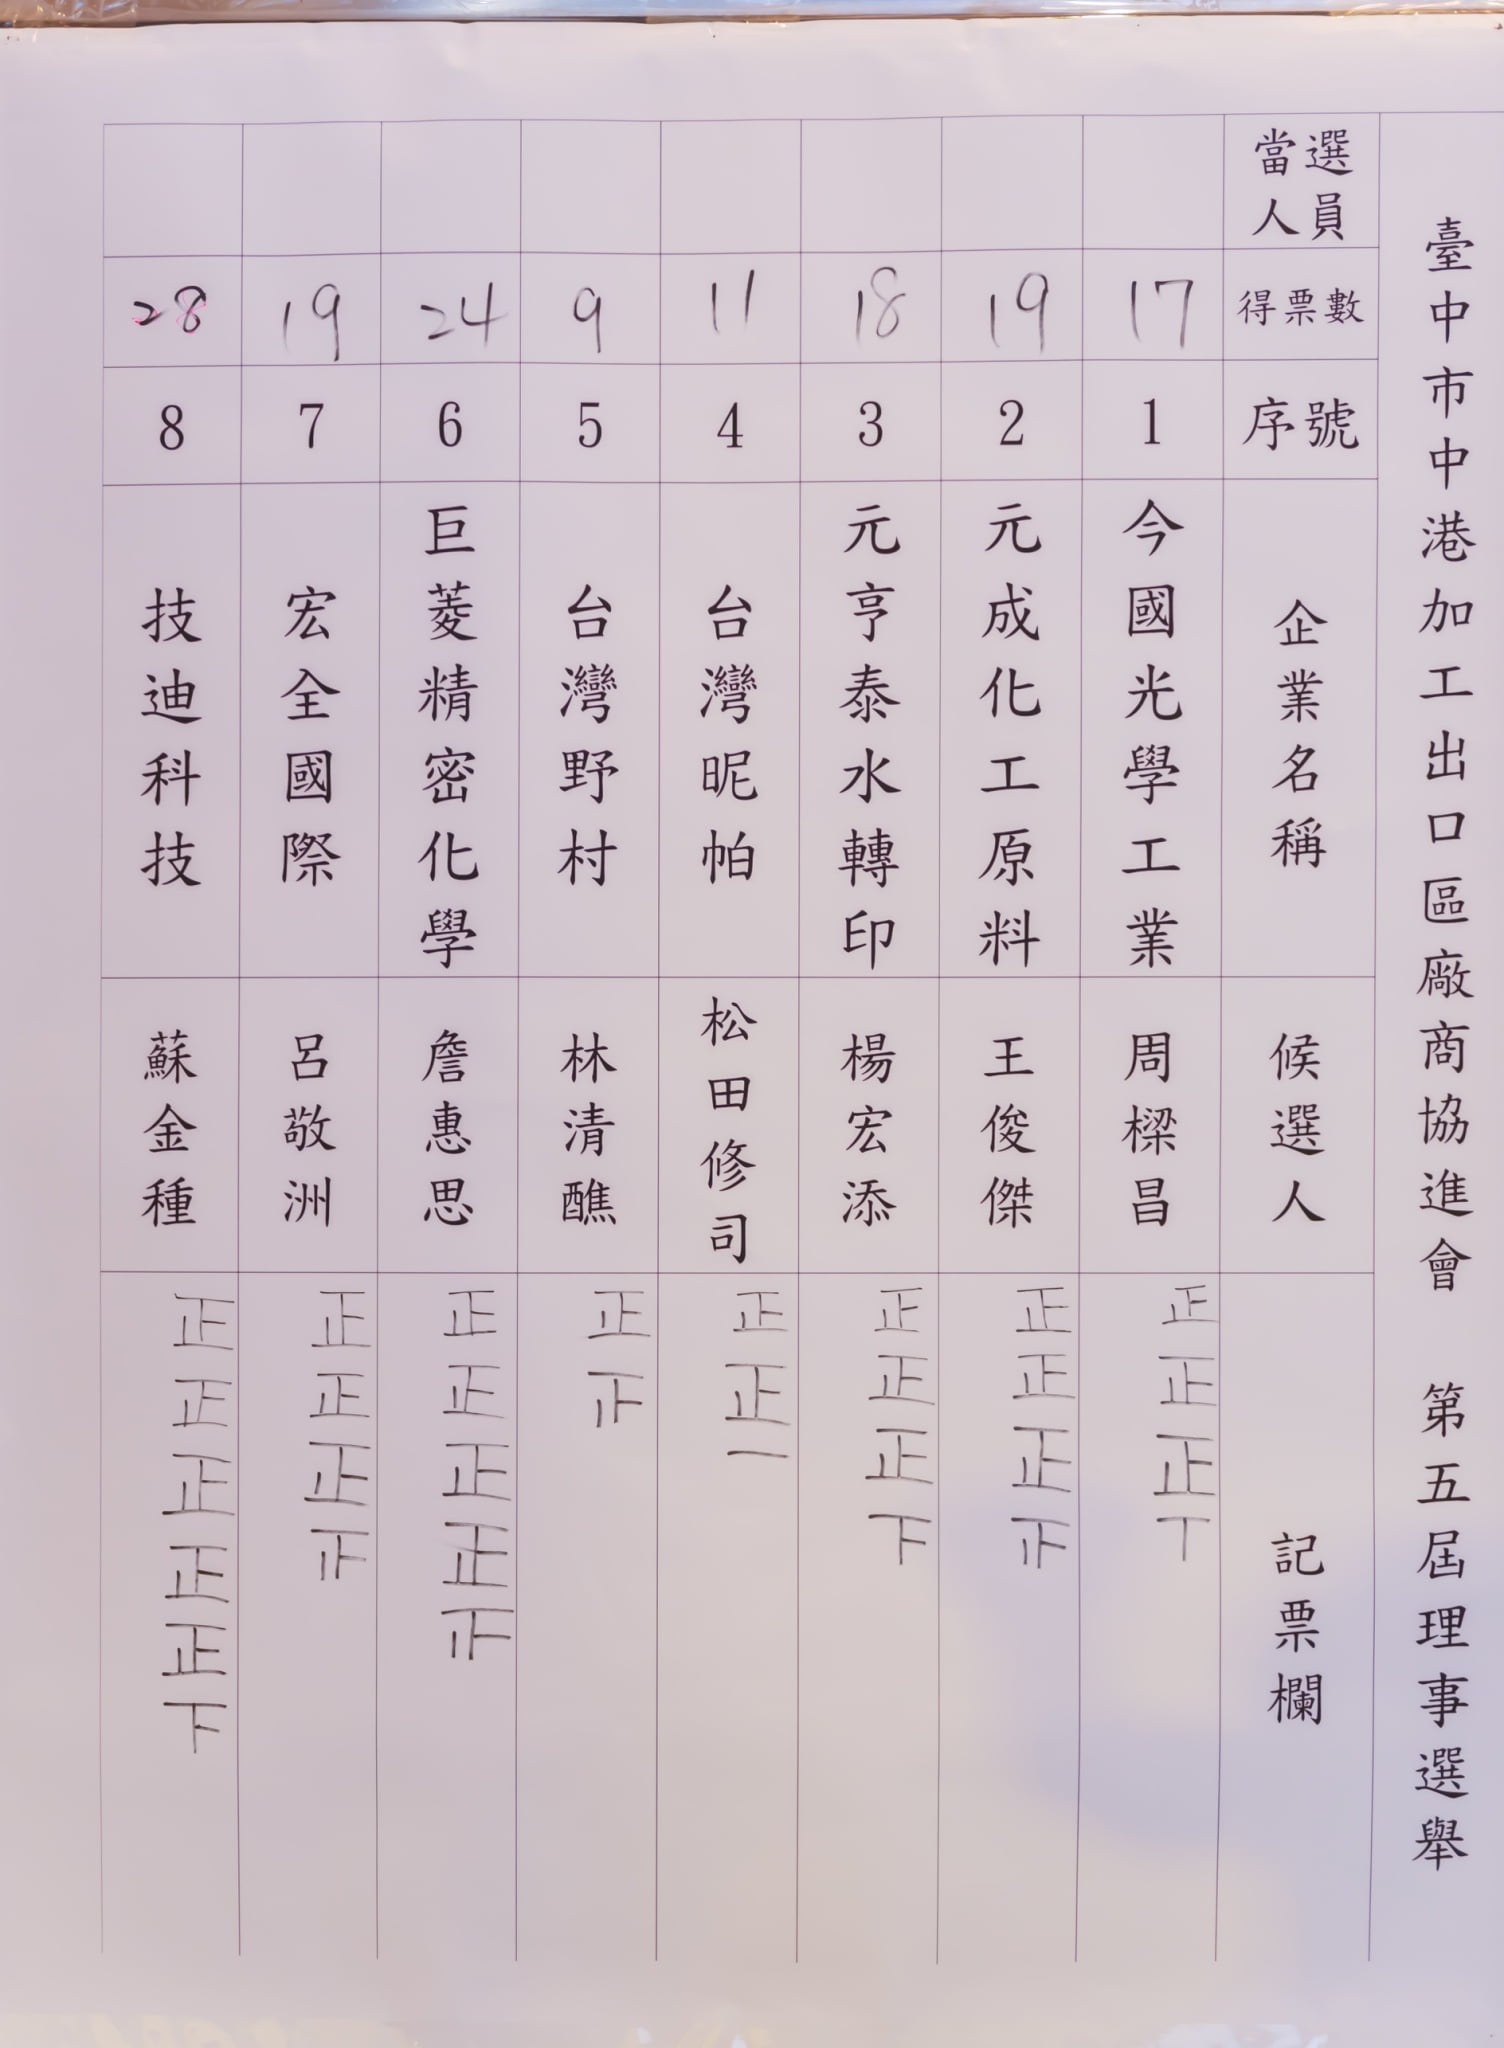 臺中市中港加工出口區廠商協進會 第五屆理事選舉
當選人員
得票數
序號
企業名稱
候選人
記票欄
17
1
今國光學工業
周樑昌
正正正丅
19
2
元成化工原料
王俊傑
正正正止
18
3
元亨泰水轉印
楊宏添
正正正下
11
4
台灣昵帕
松田修司
正正一
9
5
台灣野村
林清醮
正
24
6
巨菱精密化學
詹惠思
正正正正
19
7
宏全國際
呂敬洲
正正正
28
8
技迪科技
蘇金種
正正正正正下